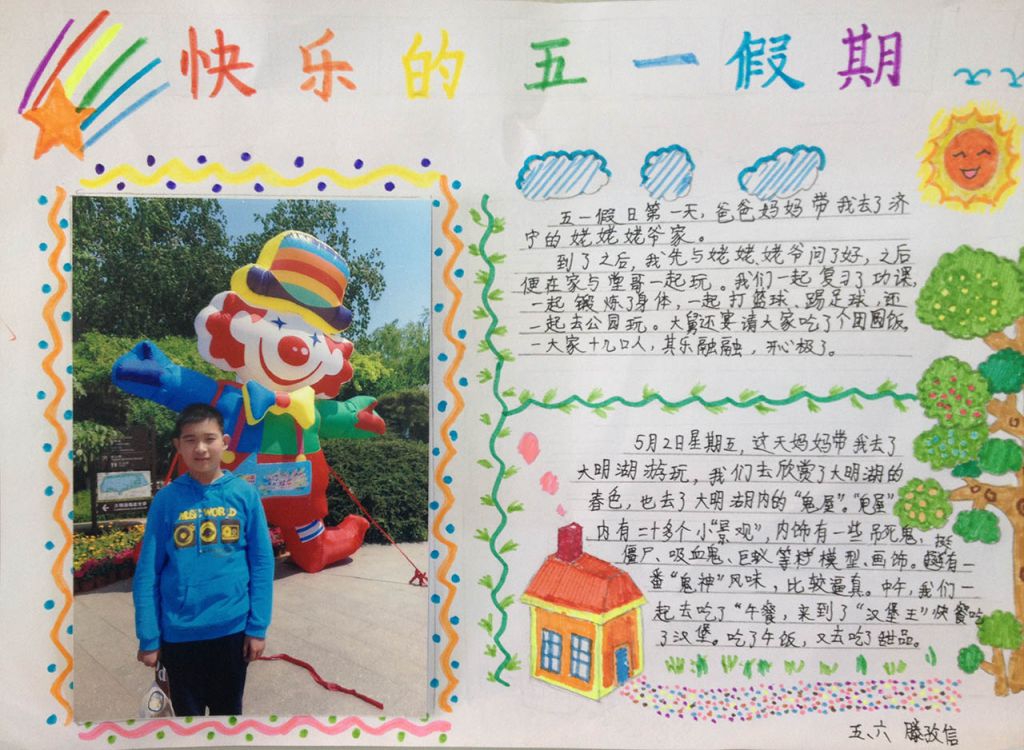 快乐的五一假期
五一假日第一天，爸爸妈妈带我去了济
宁的姥姥姥爷家。
到了之后，我先与姥姥姥爷问了好，之后
便在家与堂哥一起玩。我们一起复习了功课，
一起锻炼了身体，一起打篮球、踢足球，还
一起去公园玩。大舅还宴请大家吃了个团圆饭，
一大家十几口人，其乐融融，开心极了。
5月2日星期五，这天妈妈带我去了
大明湖游玩，我们去欣赏了大明湖的
春色，也去了大明湖内的“鬼屋”。“鬼屋”
内有二十多个小“景观”，内饰有一些吊死鬼，
僵尸、吸血鬼、巨蚁等模型、画饰。有一
番“鬼神”风味，比较逼真。中午，我们一
起去吃了“午餐，来到了“汉堡王”快餐吃
了汉堡。吃了午饭，又去吃了甜品。
五、六 滕孜信
MUSIC WORLD